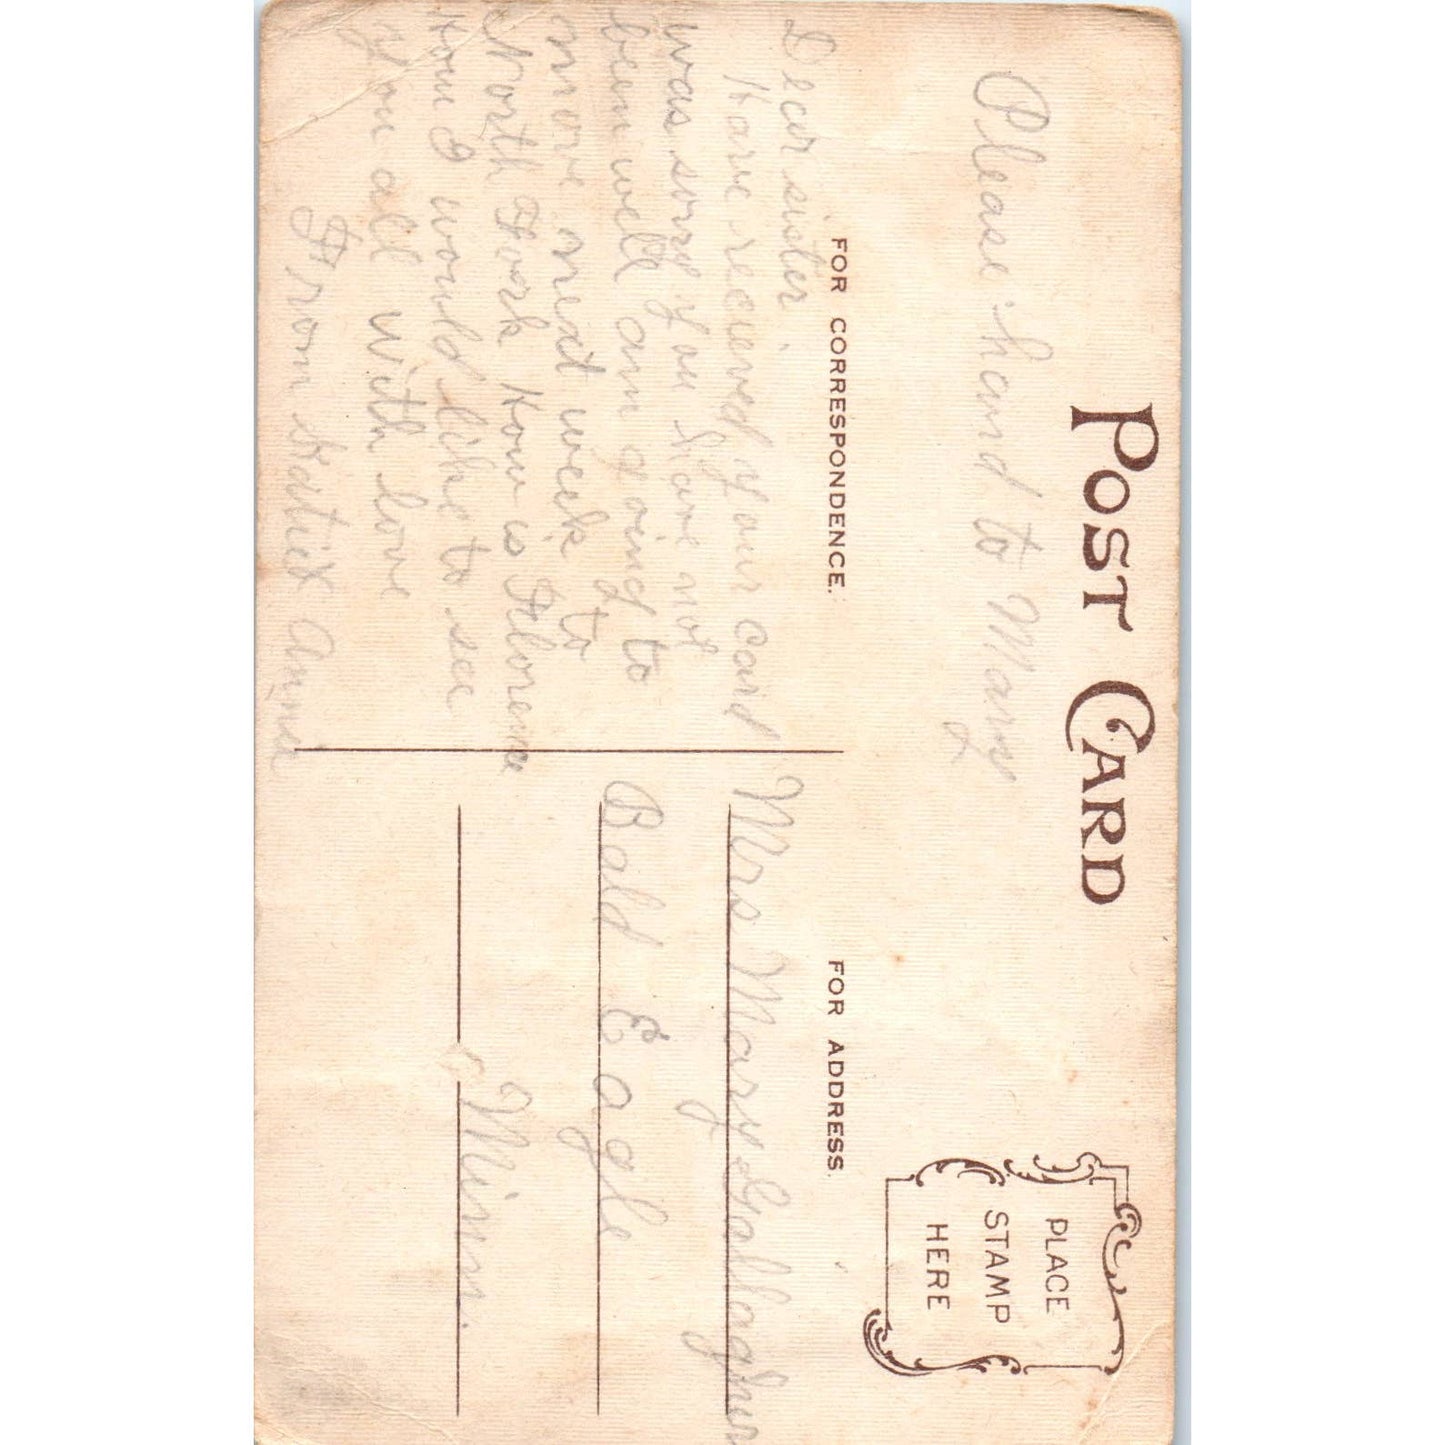 POST CARD
Please hand to Mary
PLACE
STAMP
HERE
FOR CORRESPONDENCE.
FOR ADDRESS.
Dear sister.
Have recieved your card
was sorry you have not
been well am going to
move next week to
North Fork How is Florence
How I would like to see
you all with love
From Sister Annie
Mrs Mary Gallagher
Bald Eagle
Minn.